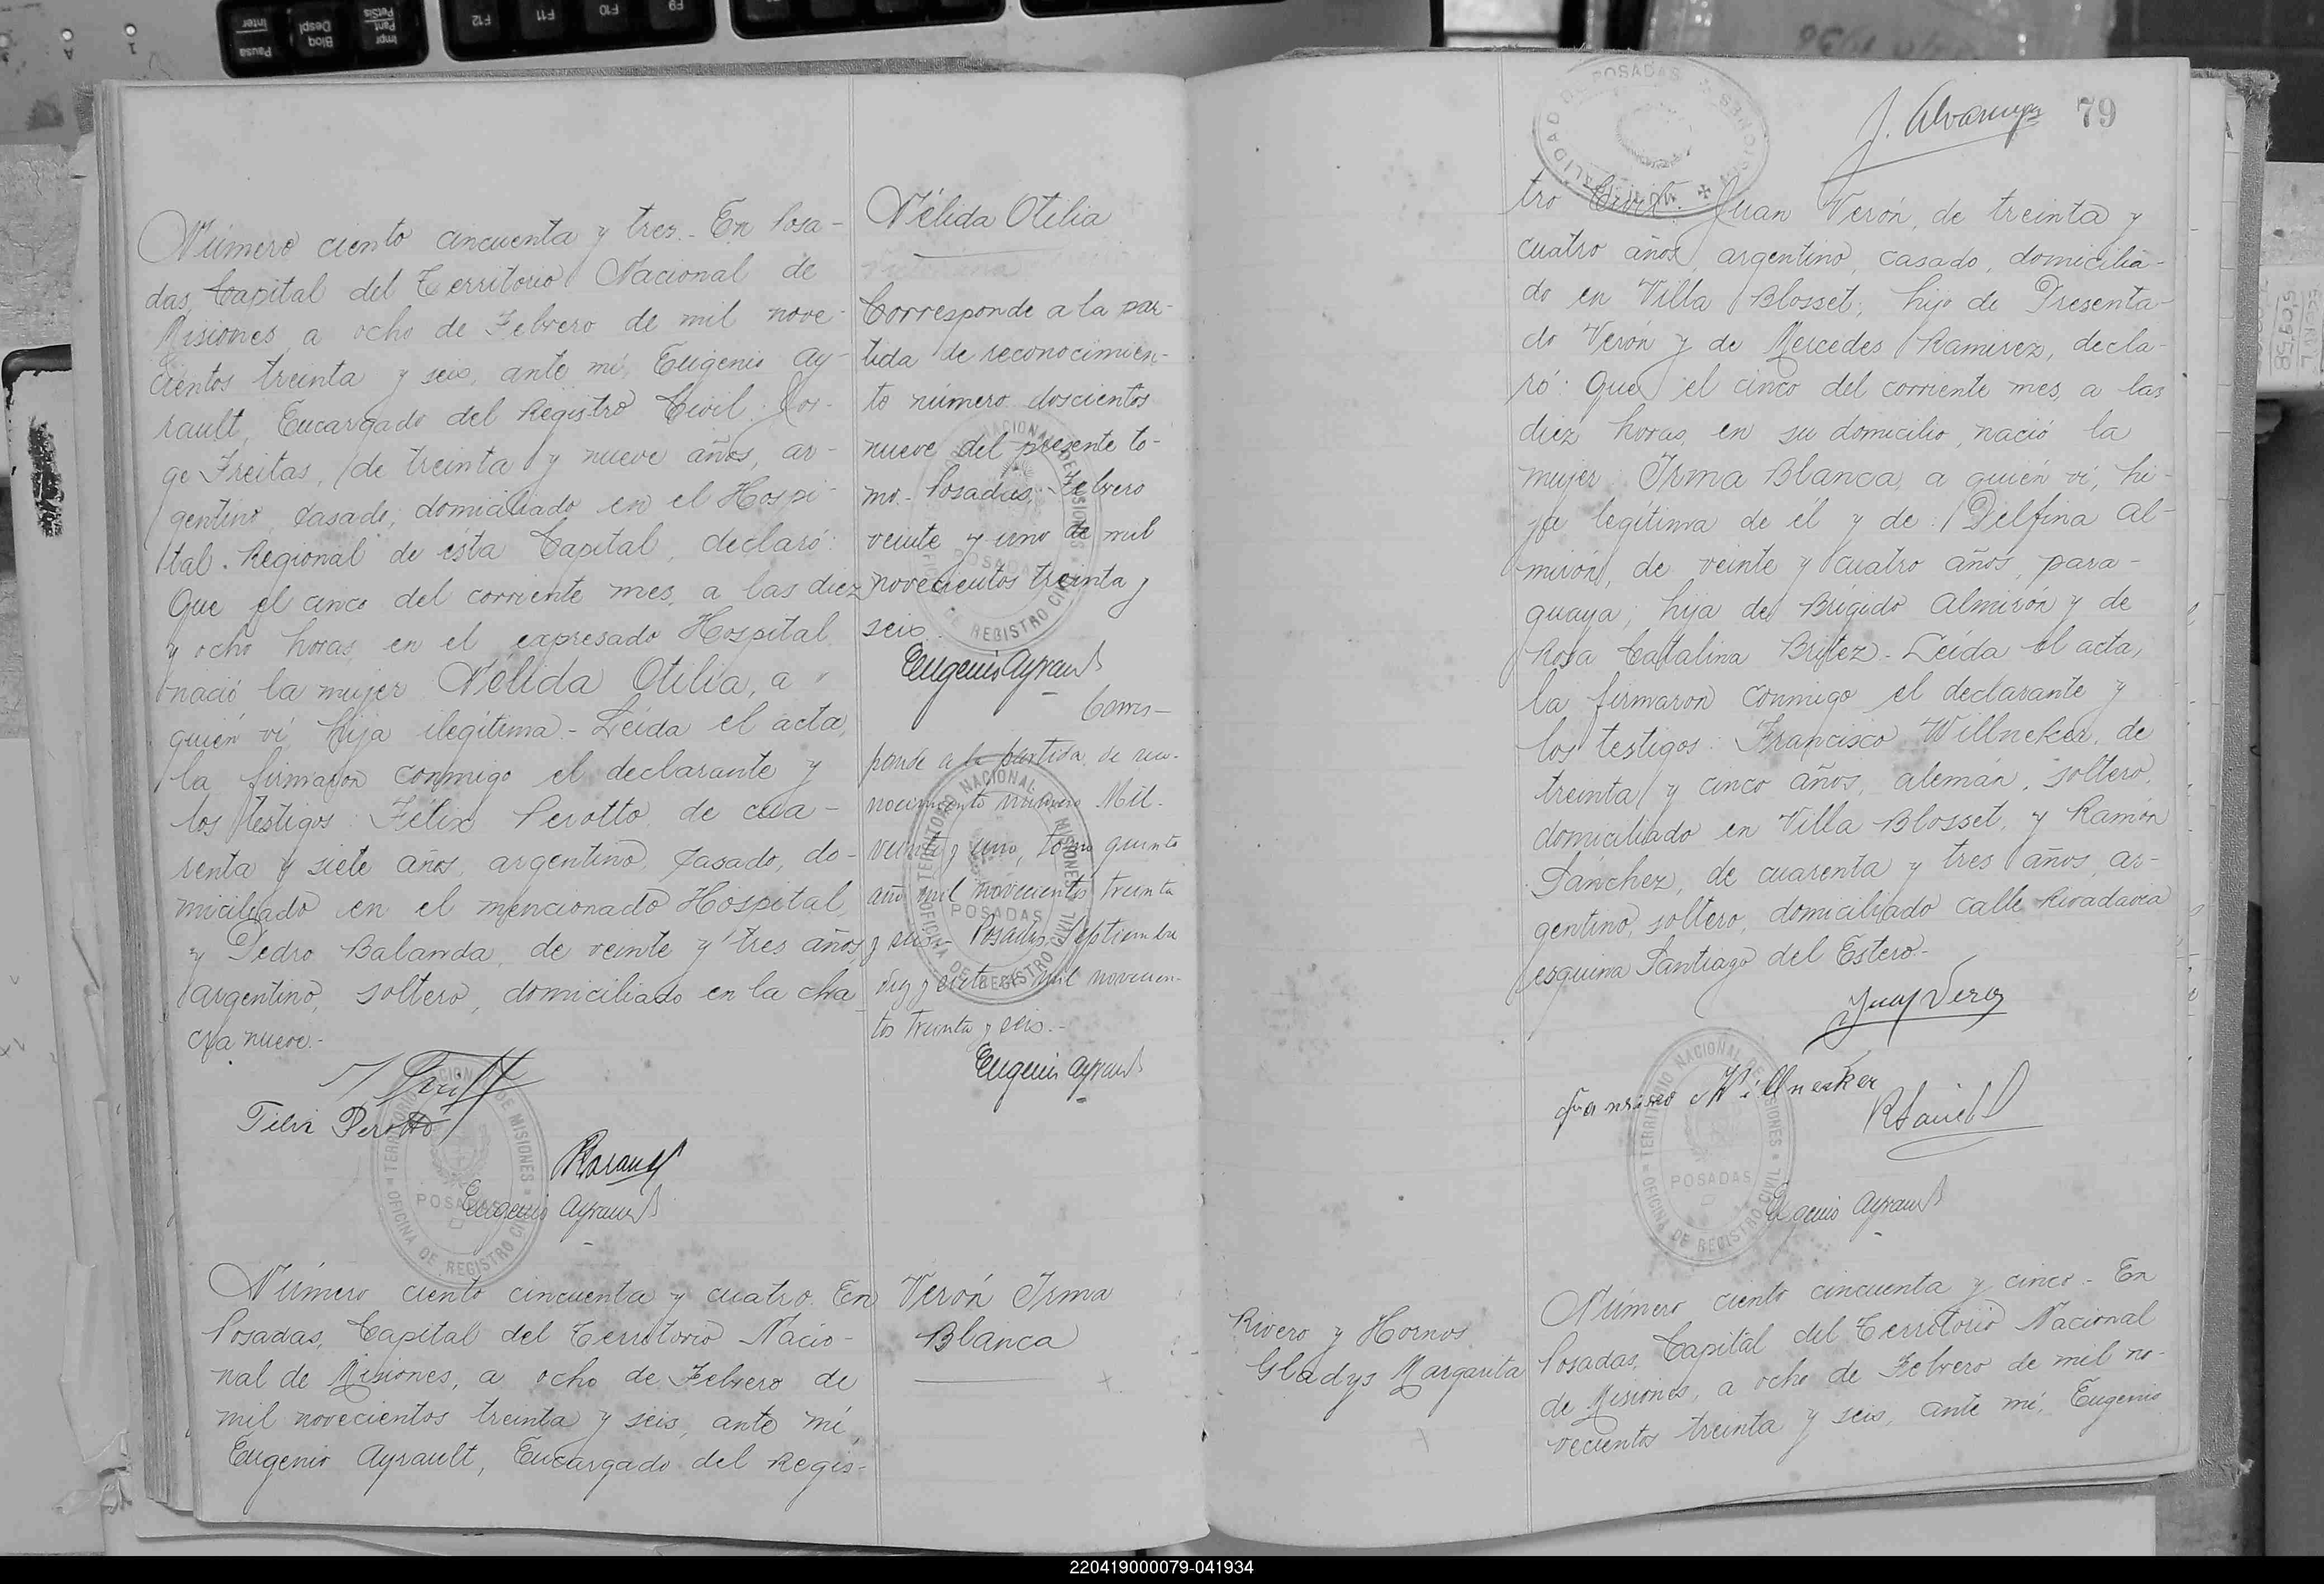 Número ciento cincuenta y tres.- En Posa-
das, Capital del Territorio Nacional de
Misiones a ocho de Febrero de mil nove-
cientos treinta y seis, ante mí, Eugenio Ay-
rault, Encargado del Registro Civil: Jor-
ge Freitas, de treinta y nueve años, ar-
gentino, casado, domiciliado en el Hospi-
tal Regional de esta Capital, declaró:
Que el cinco del corriente mes, a las diez
y ocho horas, en el expresado Hospital,
nació la mujer Nélida Otilia, a
quién ví, hija ilegítima.- Leída el acta,
la firmaron conmigo el declarante y
los testigos: Félix Perotto, de cua-
renta y siete años, argentino, casado, do-
miciliado en el mencionado Hospital,
y Pedro Balanda, de veinte y tres años,
argentino, soltero, domiciliado en la cha-
cra nueve.-
Felix Perotto
Eugenio Ayrault
TERRITORIO NACIONAL DE MISIONES
POSADAS
OFICINA DE REGISTRO CIVIL
Nélida Otilia
Corresponde a la par-
tida de reconocimien-
to número doscientos
nueve del presente to-
mo.- Posadas, Febrero
veinte y uno de mil
novecientos treinta y
seis.
Eugenio Ayrault
Corres-
ponde a la partida de reco-
nocimiento número Mil
veinte y uno, tomo quinto
año mil novecientos treinta
y seis.- Posadas, Septiembre
diez y siete mil novecien-
tos treinta y seis.-
Eugenio Ayrault
TERRITORIO NACIONAL DE MISIONES
POSADAS
OFICINA DE REGISTRO CIVIL
Número ciento cincuenta y cuatro. En
Posadas, Capital del Territorio Nacio-
nal de Misiones, a ocho de Febrero de
mil novecientos treinta y seis, ante mí,
Eugenio Ayrault, Encargado del Regis-
Verón Irma
Blanca
79
tro Civil: Juan Verón, de treinta y
cuatro años, argentino, casado, domicilia-
do en Villa Blosset, hijo de Presenta-
do Verón y de Mercedes Ramirez, decla-
ró: Que el cinco del corriente mes, a las
diez horas, en su domicilio, nació la
mujer Irma Blanca, a quién ví, hi-
ja legítima de él y de Delfina Al-
mirón, de veinte y cuatro años, para-
guaya, hija de Brígido Almirón y de
Rosa Catalina Britez.- Leída el acta,
la firmaron conmigo el declarante y
los testigos: Francisco Willneker, de
treinta y cinco años, alemán, soltero,
domiciliado en Villa Blosset, y Ramón
Sánchez, de cuarenta y tres años, ar-
gentino, soltero, domiciliado calle Rivadavia
esquina Santiago del Estero.-
Juan Veron
Francisco Willneker
Eugenio Ayrault
TERRITORIO NACIONAL DE MISIONES
POSADAS
OFICINA DE REGISTRO CIVIL
Rivero y Hornos
Gladys Margarita
Número ciento cincuenta y cinco.- En
Posadas, Capital del Territorio Nacional
de Misiones, a ocho de Febrero de mil no-
vecientos treinta y seis, ante mí, Eugenio
220419000079-041934